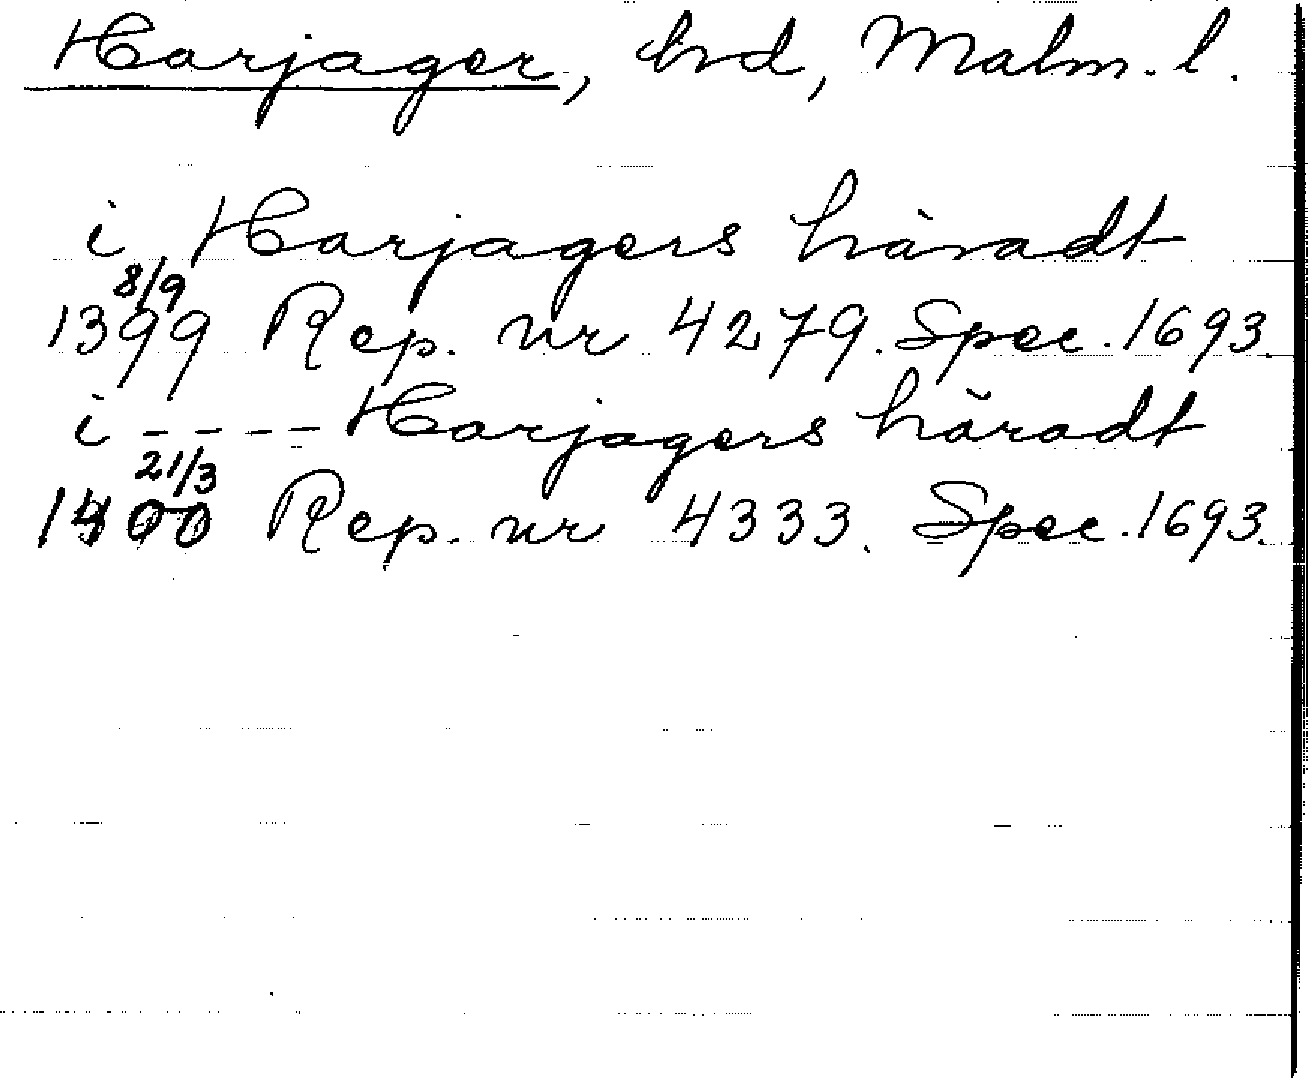 Harjager, hd, Malm. l.
i Harjagers häradt
8/9
1399 Rep. nr 4279. Spec. 1693.
i - - - - Harjagers häradt
21/3
1400 Rep. nr 4333. Spec. 1693.